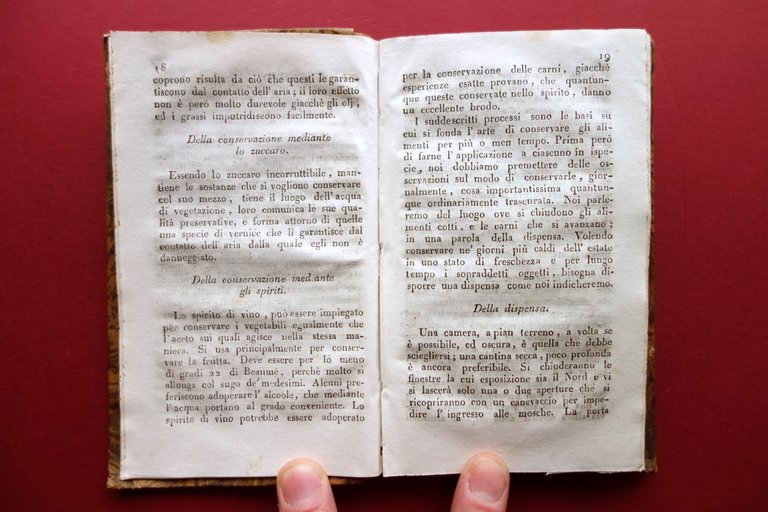 18
coprono risulta da ciò che questi le garan-
tiscono dal contatto dell'aria; il loro effetto
non è però molto durevole giacchè gli olj,
ed i grassi imputridiscono facilmente.
Della conservazione mediante
lo zuccaro.
Essendo lo zuccaro incorruttibile, man-
tiene le sostanze che si vogliono conservare
col suo mezzo, tiene il luogo dell'acqua
di vegetazione, loro comunica le sue qua-
lità preservative, e forma attorno di quelle
una specie di vernice che li garantisce dal
contatto dell'aria dalla quale egli non è
danneggiato.
Della conservazione mediante
gli spiriti.
Lo spirito di vino, può essere impiegato
per conservare i vegetabili egualmente che
l'aceto sui quali agisce nella stessa ma-
niera. Si usa principalmente per conser-
vare la frutta. Deve essere per lo meno
di gradi 22 di Beaumè, perchè molto si
allunga col sugo de' medesimi. Alcuni pre-
feriscono adoperare l'alcoole, che mediante
l'acqua portano al grado conveniente. Lo
spirito di vino potrebbe essere adoperato
19
per la conservazione delle carni, giacchè
esperienze esatte provano, che quantun-
que queste conservate nello spirito, danno
un eccellente brodo.
I suddescritti processi sono le basi su
cui si fonda l'arte di conservare gli ali-
menti per più o men tempo. Prima però
di farne l'applicazione a ciascuno in ispe-
cie, noi dobbiamo premettere delle os-
servazioni sul modo di conservarle, gior-
nalmente, cosa importantissima quantun-
que ordinariamente trascurata. Noi parle-
remo del luogo ove si chiudono gli ali-
menti cotti, e le carni che si avanzano;
in una parola della dispensa. Volendo
conservare ne' giorni più caldi dell'estate
in uno stato di freschezza e per lungo
tempo i sopraddetti oggetti, bisogna di-
sporre una dispensa come noi indicheremo.
Della dispensa.
Una camera, a pian terreno, a volta se
è possibile, ed oscura, è quella che debbe
sciegliersi; una cantina secca, poco profonda
è ancora preferibile. Si chiuderanno le
finestre la cui esposizione sia il Nord e vi
si lascerà solo una o due aperture che si
ricopriranno con un canevaccio per impe-
dire l'ingresso alle mosche. La porta